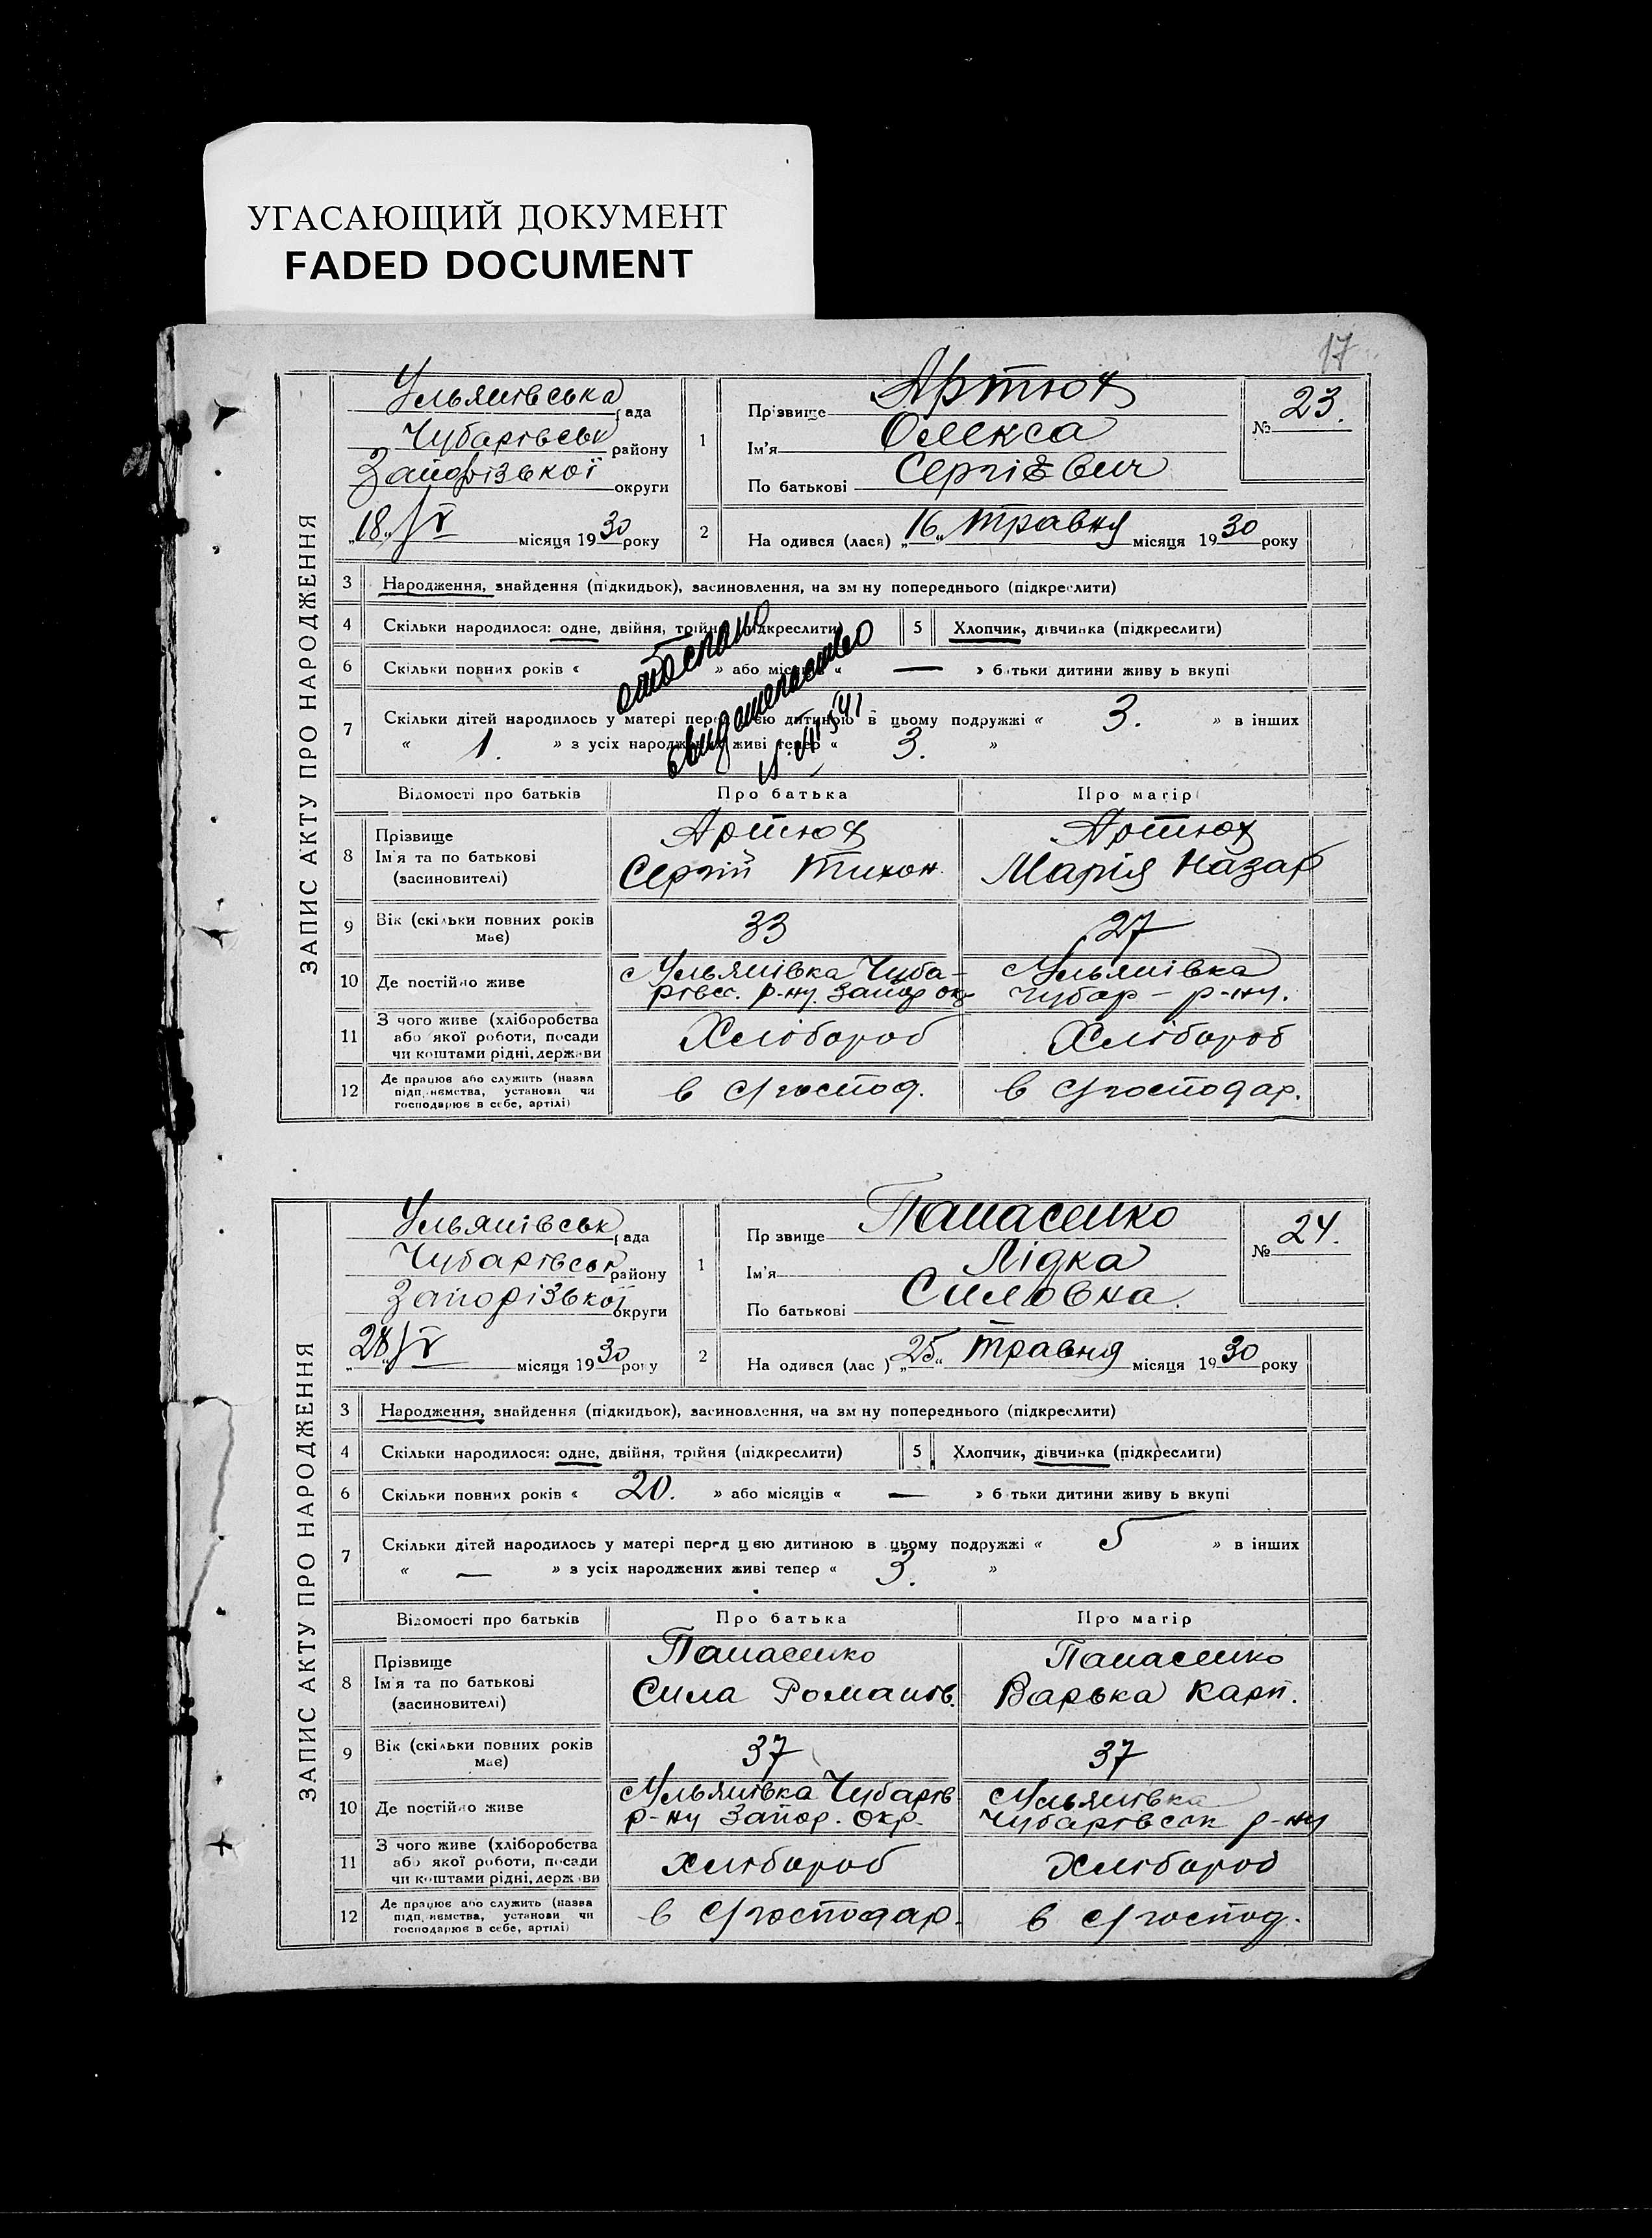 УГАСАЮЩИЙ ДОКУМЕНТ
FADED DOCUMENT
17
ЗАПИС АКТУ ПРО НАРОДЖЕННЯ
Ульянівська рада
Чубарівськ району
Запорізької округи
"18" V місяця 1930 року
1 Прізвище Артюх
Ім'я Олекса
По батькові Сергієвич
№ 23.
2 На одився (лася) "16" травня місяця 1930 року
3 Народження, знайдення (підкидьок), засиновлення, на зм ну попереднього (підкреслити)
4 Скільки народилося: одне, двійня, трійня (підкреслити)
5 Хлопчик, дівчинка (підкреслити)
6 Скільки повних років « » або місяців « — » б тьки дитини живу ь вкупі
7 Скільки дітей народилось у матері перед цією дитиною в цьому подружжі « 3. » в інших
« 1. » з усіх народжених живі тепер « 3. »
Відомості про батьків Про батька Про матір
8 Прізвище
Ім'я та по батькові
(засиновителі)
Артюх
Сергій Тихон.
Артюх
Марія Назар
9 Вік (скільки повних років
має)
33
27
10 Де постійно живе
с Ульянівка Чуба-
рівсь. р-ну. Запор окр
с Ульянівка
Чубар - р-ну.
11 З чого живе (хліборобства
або якої роботи, посади
чи коштами рідні, держави
Хлібороб
Хлібороб
12 Де працює або служить (назва
підп иємства, установи чи
господарює в себе, артілі)
в с/господ.
в с/господар.
ЗАПИС АКТУ ПРО НАРОДЖЕННЯ
Ульянівськ рада
Чубарівськ району
Запорізької округи
"28" V місяця 1930 року
1 Пр звище Панасенко
Ім'я Лідка
По батькові Силовна.
№ 24.
2 На одився (лас ) "25" травня місяця 1930 року
3 Народження, знайдення (підкидьок), засиновлення, на зм ну попереднього (підкреслити)
4 Скільки народилося: одне, двійня, трійня (підкреслити)
5 Хлопчик, дівчинка (підкреслити)
6 Скільки повних років « 20. » або місяців « — » б тьки дитини живу ь вкупі
7 Скільки дітей народилось у матері перед цією дитиною в цьому подружжі « 5 » в інших
« — » з усіх народжених живі тепер « 3. »
Відомості про батьків Про батька Про матір
8 Прізвище
Ім'я та по батькові
(засиновителі)
Панасенко
Сила Романів.
Панасенко
Варька Карп.
9 Вік (скільки повних років
має)
37
37
10 Де постійно живе
с Ульянівка Чубарів
р-ну Запор. Окр.
с Ульянівка
Чубарівськ р-ну
11 З чого живе (хліборобства
або якої роботи, посади
чи коштами рідні, держ ви
Хлібороб
Хлібороб
12 Де працює або служить (назва
підп иємства, установи чи
господарює в себе, артілі)
в с/господар.
в с/господ.